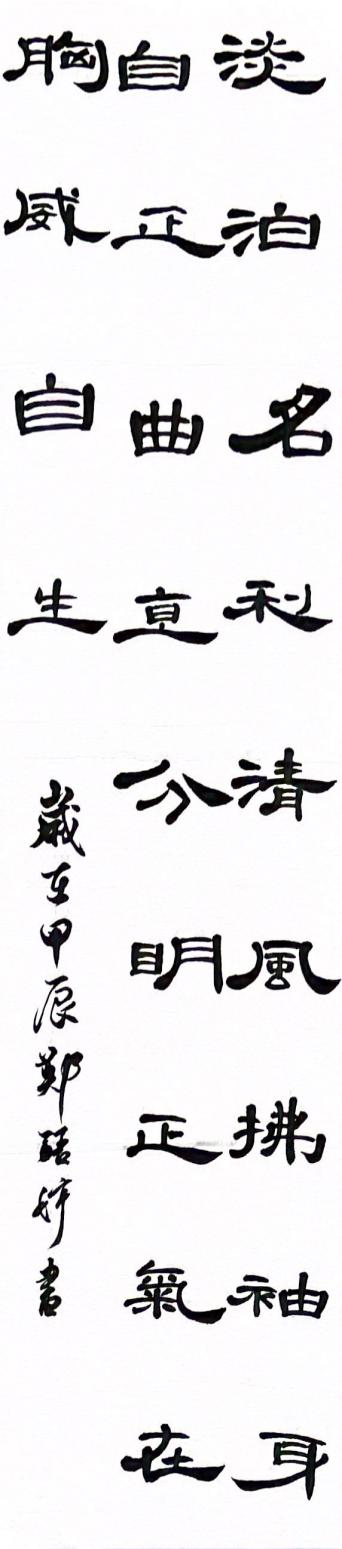 淡泊名利清風拂袖身
自正曲直分明正氣在
胸威自生
歲在甲辰鄭婷書